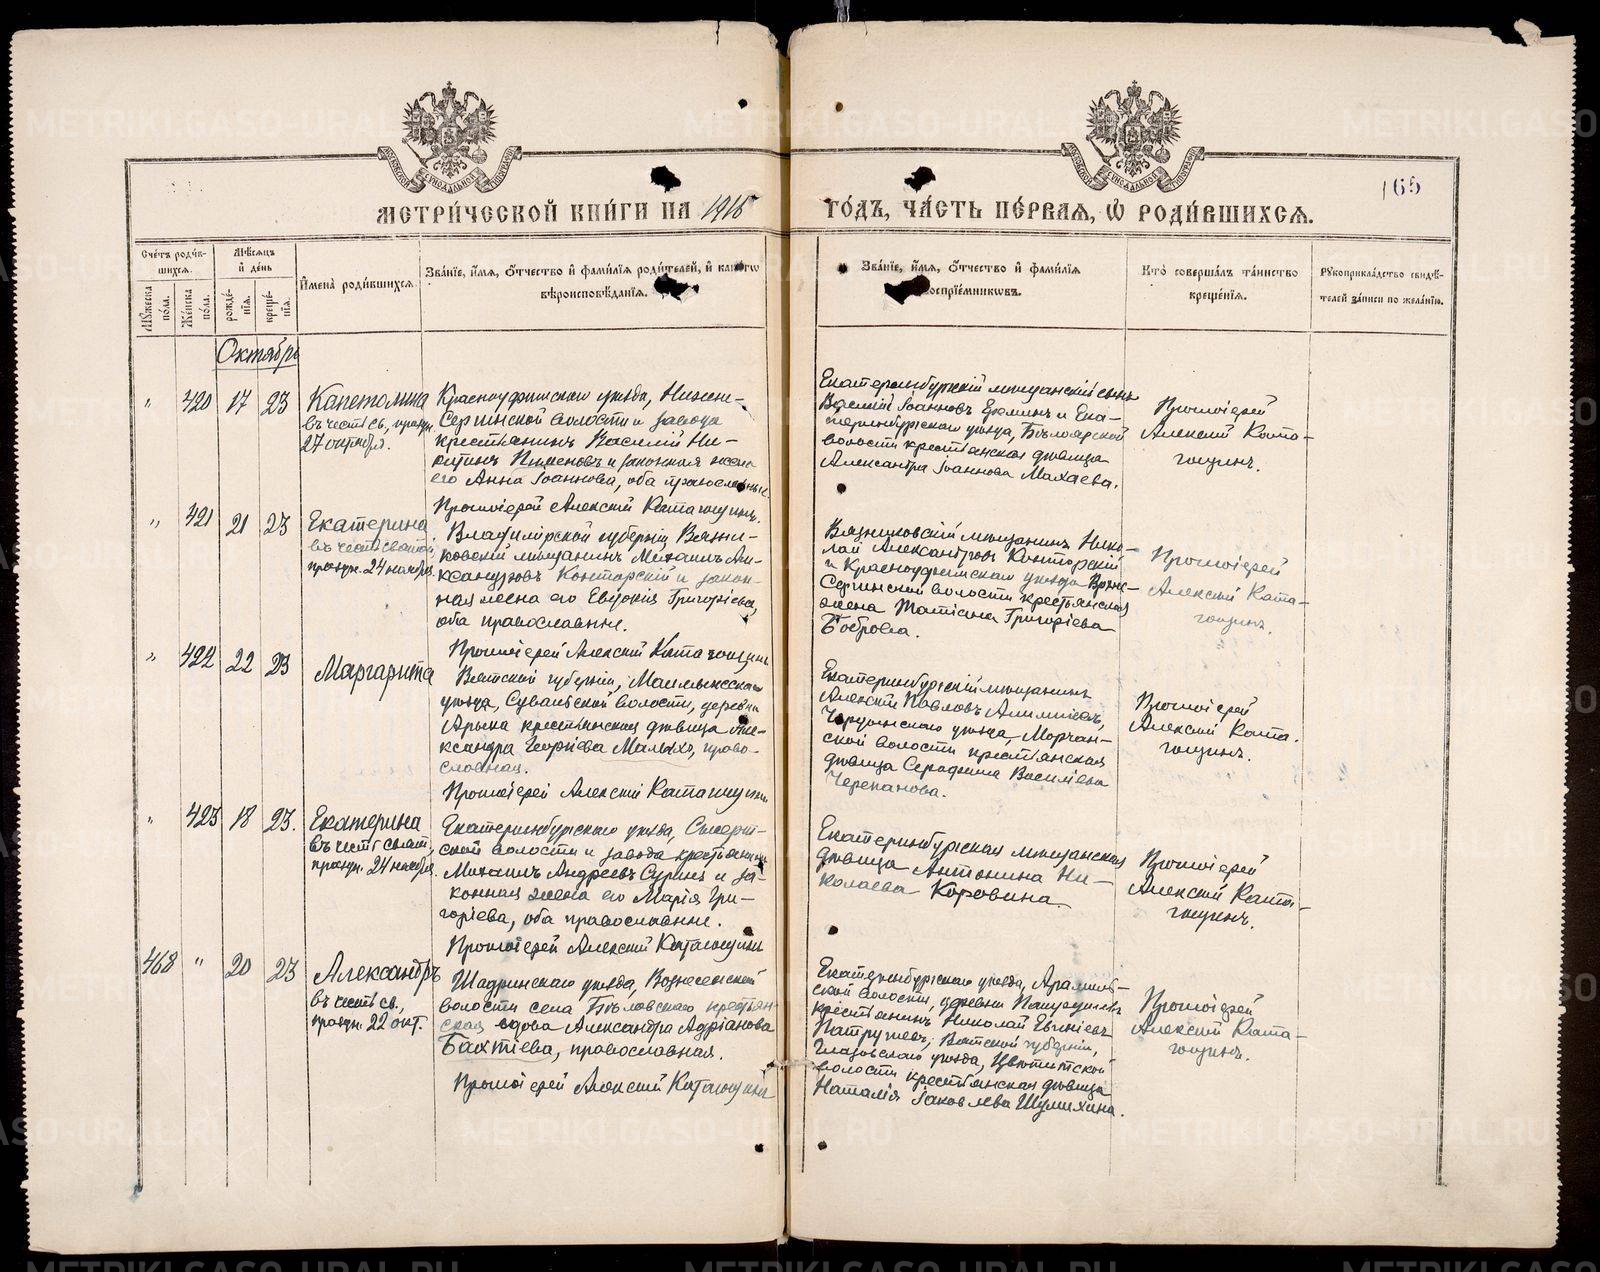 165
МЕТРИ́ЧЕСКОЙ КНИ́ГИ НА 1916
ГО́ДЪ, ЧА́СТЬ ПЕ́РВАЯ, Ѡ҆ РОДИ́ВШИХСЯ.
Сче́тъ роди́в-
шихся.
Мꙋ́жеска по́ла.
Же́нска по́ла.
Мѣ́сяцъ
и҆ де́нь
рожде́-
нїя.
креще́-
нїя.
И҆мена̀ роди́вшихся.
Зва́нїе, и҆́мя, ѻ҆́тчество и҆ фами́лїя роди́телей, и҆ како́гѡ
вѣроисповѣ́данїя.
Зва́нїе, и҆́мя, ѻ҆́тчество и҆ фами́лїя
воспрїе́мникѡвъ.
Кто̀ соверша́лъ та́инство
креще́нїя.
Рꙋкоприкла́дство свидѣ́-
телей за́писи по жела́нїю.
Октябрь
" 420 17 23
Капетолина
въ честь св., праздн.
27 октября.
Красноуфимскаго уѣзда, Нижне-
Сергинской волости и завода
крестьянинъ Василій Ни-
китинъ Пименовъ и законная жена
его Анна Іоаннова, оба православные.
Протоіерей Алексій Каташинъ
Екатеринбургскій мѣщанскій сынъ
Василій Іоанновъ Еремина и Ека-
теринбургскаго уѣзда, Бѣлоярской
волости крестьянская дѣвица
Александра Іоаннова Махаева.
Протоіерей
Алексій
" 421 21 23
Екатерина
въ честь святой
праздн. 24 ноября.
Владимірской губерніи, Вязни-
ковскій мѣщанинъ Михаилъ Але-
ксандровъ Конторскій и закон-
ная жена его Евдокія Григоріева,
оба православные.
Протоіерей Алексій
Вязниковскій мѣщанинъ Нико-
лай Александровъ Конторскій
и Красноуфимскаго уѣзда
Сергинской волости крестьянская
жена Татіана Григоріева
Боброва.
Протоіерей
Алексій
" 422 22 23
Маргарита
Вятской губерніи, Малмыжскаго
уѣзда, волости, деревни
крестьянская дѣвица Але-
ксандра Георгіева Малыхъ, право-
славная.
Протоіерей Алексій
Екатеринбургскій мѣщанинъ
Алексій Павловъ
Чердынскаго уѣзда, Морчан-
ской волости крестьянская
дѣвица Серафима Василіева
Черепанова.
Протоіерей
Алексій
" 423 18 23.
Екатерина
въ честь святой,
праздн. 24 ноября.
Екатеринбургскаго уѣзда, Сысерт-
ской волости и завода крестьянинъ
Михаилъ Андреевъ и за-
конная жена его Марія Гри-
горіева, оба православные.
Протоіерей Алексій
Екатеринбургская мѣщанская
дѣвица Антонина Ни-
колаева Коровина.
Протоіерей
Алексій
468 " 20 23
Александръ
въ честь св.
праздн. 22 окт.
Шадринскаго уѣзда, Вознесенской
волости села Бѣловскаго крестьян-
ская вдова Александра Адріанова
Бахтіева, православная.
Протоіерей Алексій
Екатеринбургскаго уѣзда, Арамиль-
ской волости, деревни
крестьянинъ Николай Евгеніевъ
Патрушевъ, Вятской губерніи,
Глазовскаго уѣзда,
волости крестьянская дѣвица
Наталія Іаковлева Шумихина.
Протоіерей
Алексій
METRIKI.GASO-URAL.RU